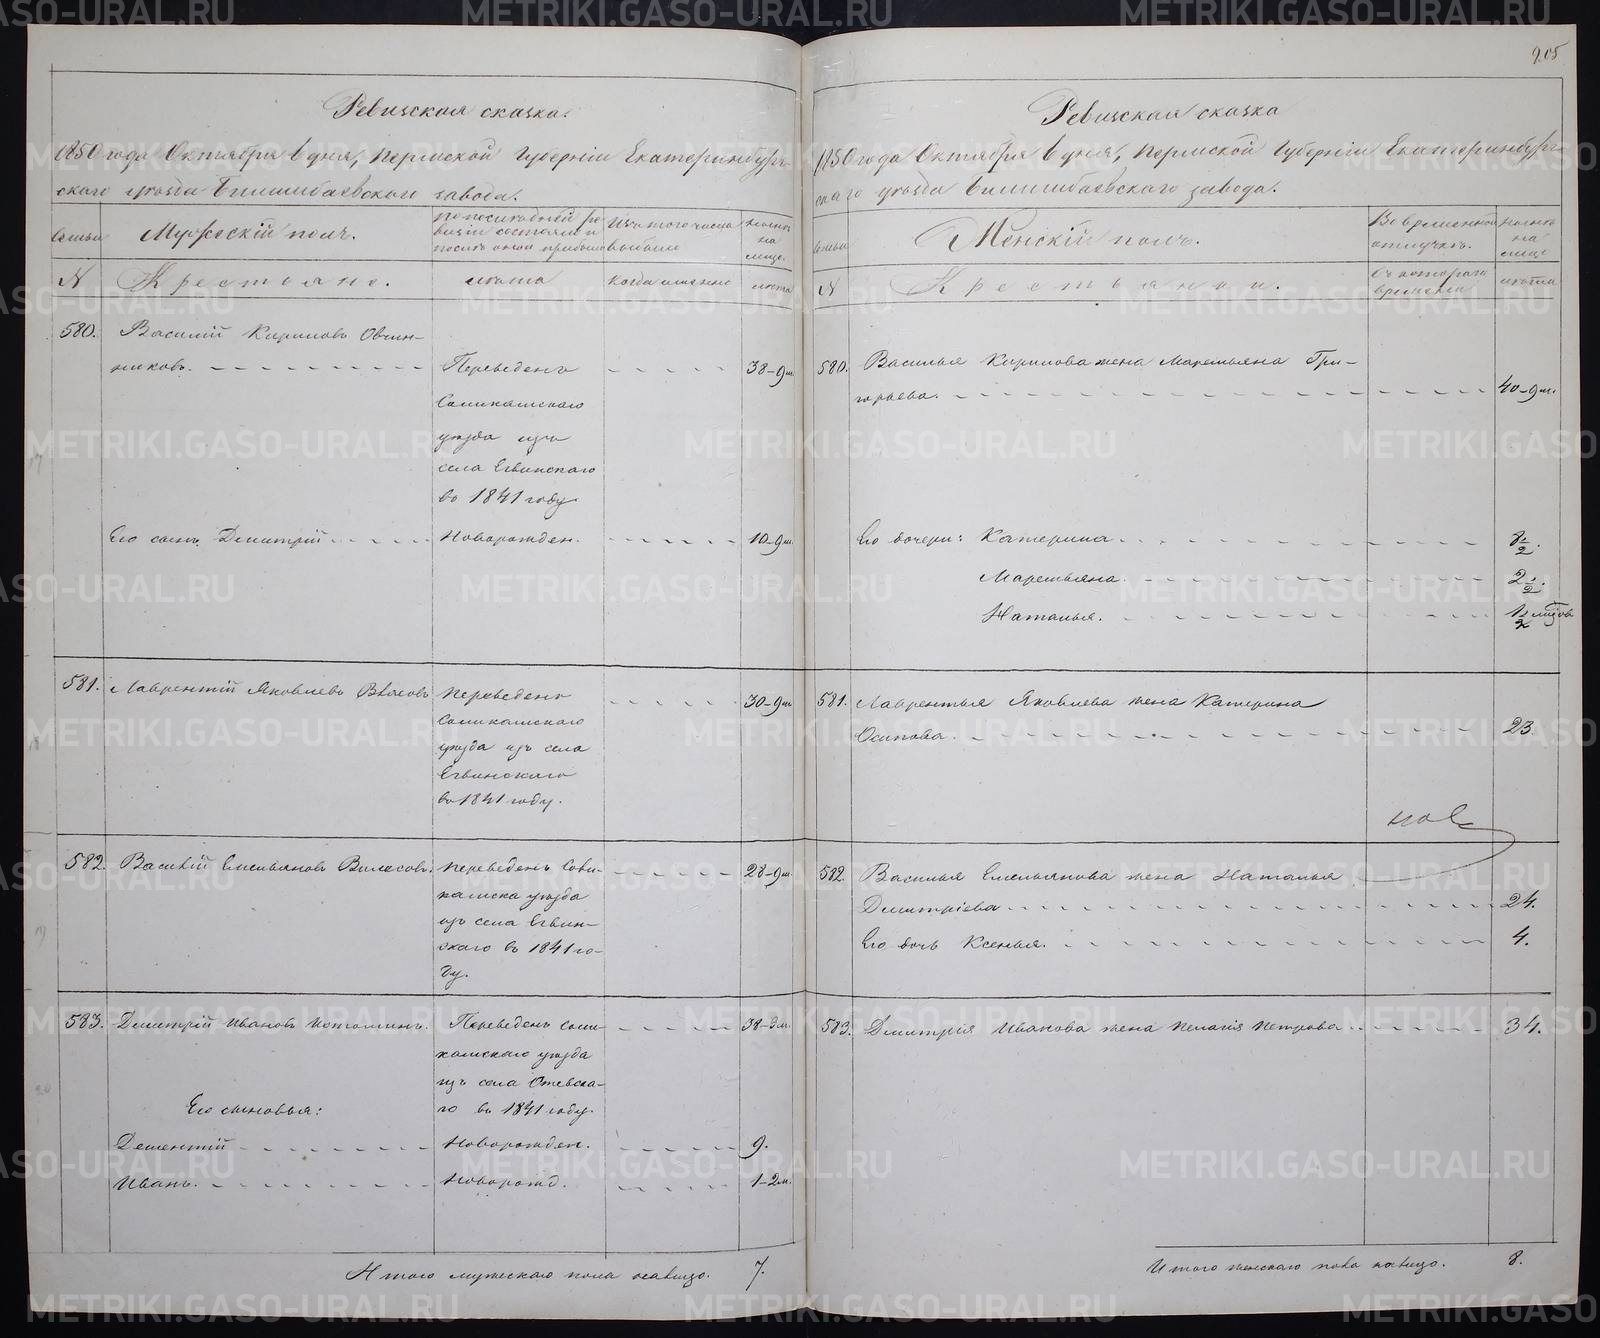 905
Ревизская сказка.
1850 года Октября 6 дня, Пермской Губерніи Екатеринбург-
скаго уѣзда Билимбаевскаго завода.
семьи
Мужескій полъ.
По послѣдней ре-
визіи состояло и
послѣ оной прибыло
Изъ того числа
выбыло
Нынѣ
на
лице.
N
Крестьяне.
лѣта
когда именно
лѣта
580.
Василій Кириловъ Овчин-
никовъ.
Переведенъ
38-9 м.
Соликамскаго
уѣзда изъ
села Егвинскаго
въ 1841 году.
Его сынъ Дмитрій
Новорожден.
10-9 м.
581.
Лаврентій Яковлевъ
Переведенъ
30-9 м.
Соликамскаго
уѣзда изъ села
Егвинскаго
въ 1841 году.
582.
Василій Емельяновъ
Переведенъ Соли-
28-9 м.
камска уѣзда
изъ села Егвин-
скаго въ 1841 го-
ду.
583.
Дмитрій Ивановъ Истоминъ.
Переведенъ Соли-
38-9 м.
камскаго уѣзда
изъ села
го въ 1841 году.
Его сыновья:
Дементій
Новорожден.
9.
Иванъ.
Новорожд.
1-2 м.
Итого мужескаго пола налицо. 7.
Ревизская сказка
1850 года Октября 6 дня, Пермской Губерніи Екатеринбург-
скаго уѣзда Билимбаевскаго завода.
семьи
Женскій полъ.
Во временной
отлучкѣ.
Нынѣ
на
лице
N
Крестьянки.
Съ котораго
времени
лѣта
580.
Василья Кирилова жена Маремьяна Гри-
горьева.
40-9 м.
Его дочери: Катерина
8 1/2.
Маремьяна
2 1/2.
Наталья.
581.
Лаврентья Яковлева жена Катерина
Осипова.
23.
582.
Василья Емельянова жена Наталья
Дмитріева
24.
Его дочь Ксенья.
4.
583.
Дмитрія Иванова жена Пелагія Петрова
34.
Итого женскаго пола налицо. 8.
METRIKI.GASO-URAL.RU